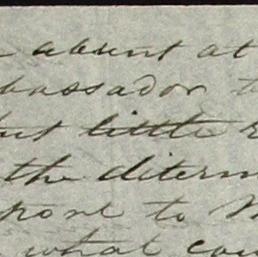 absent at
bassador to
but little
the determ
pose to
what cou